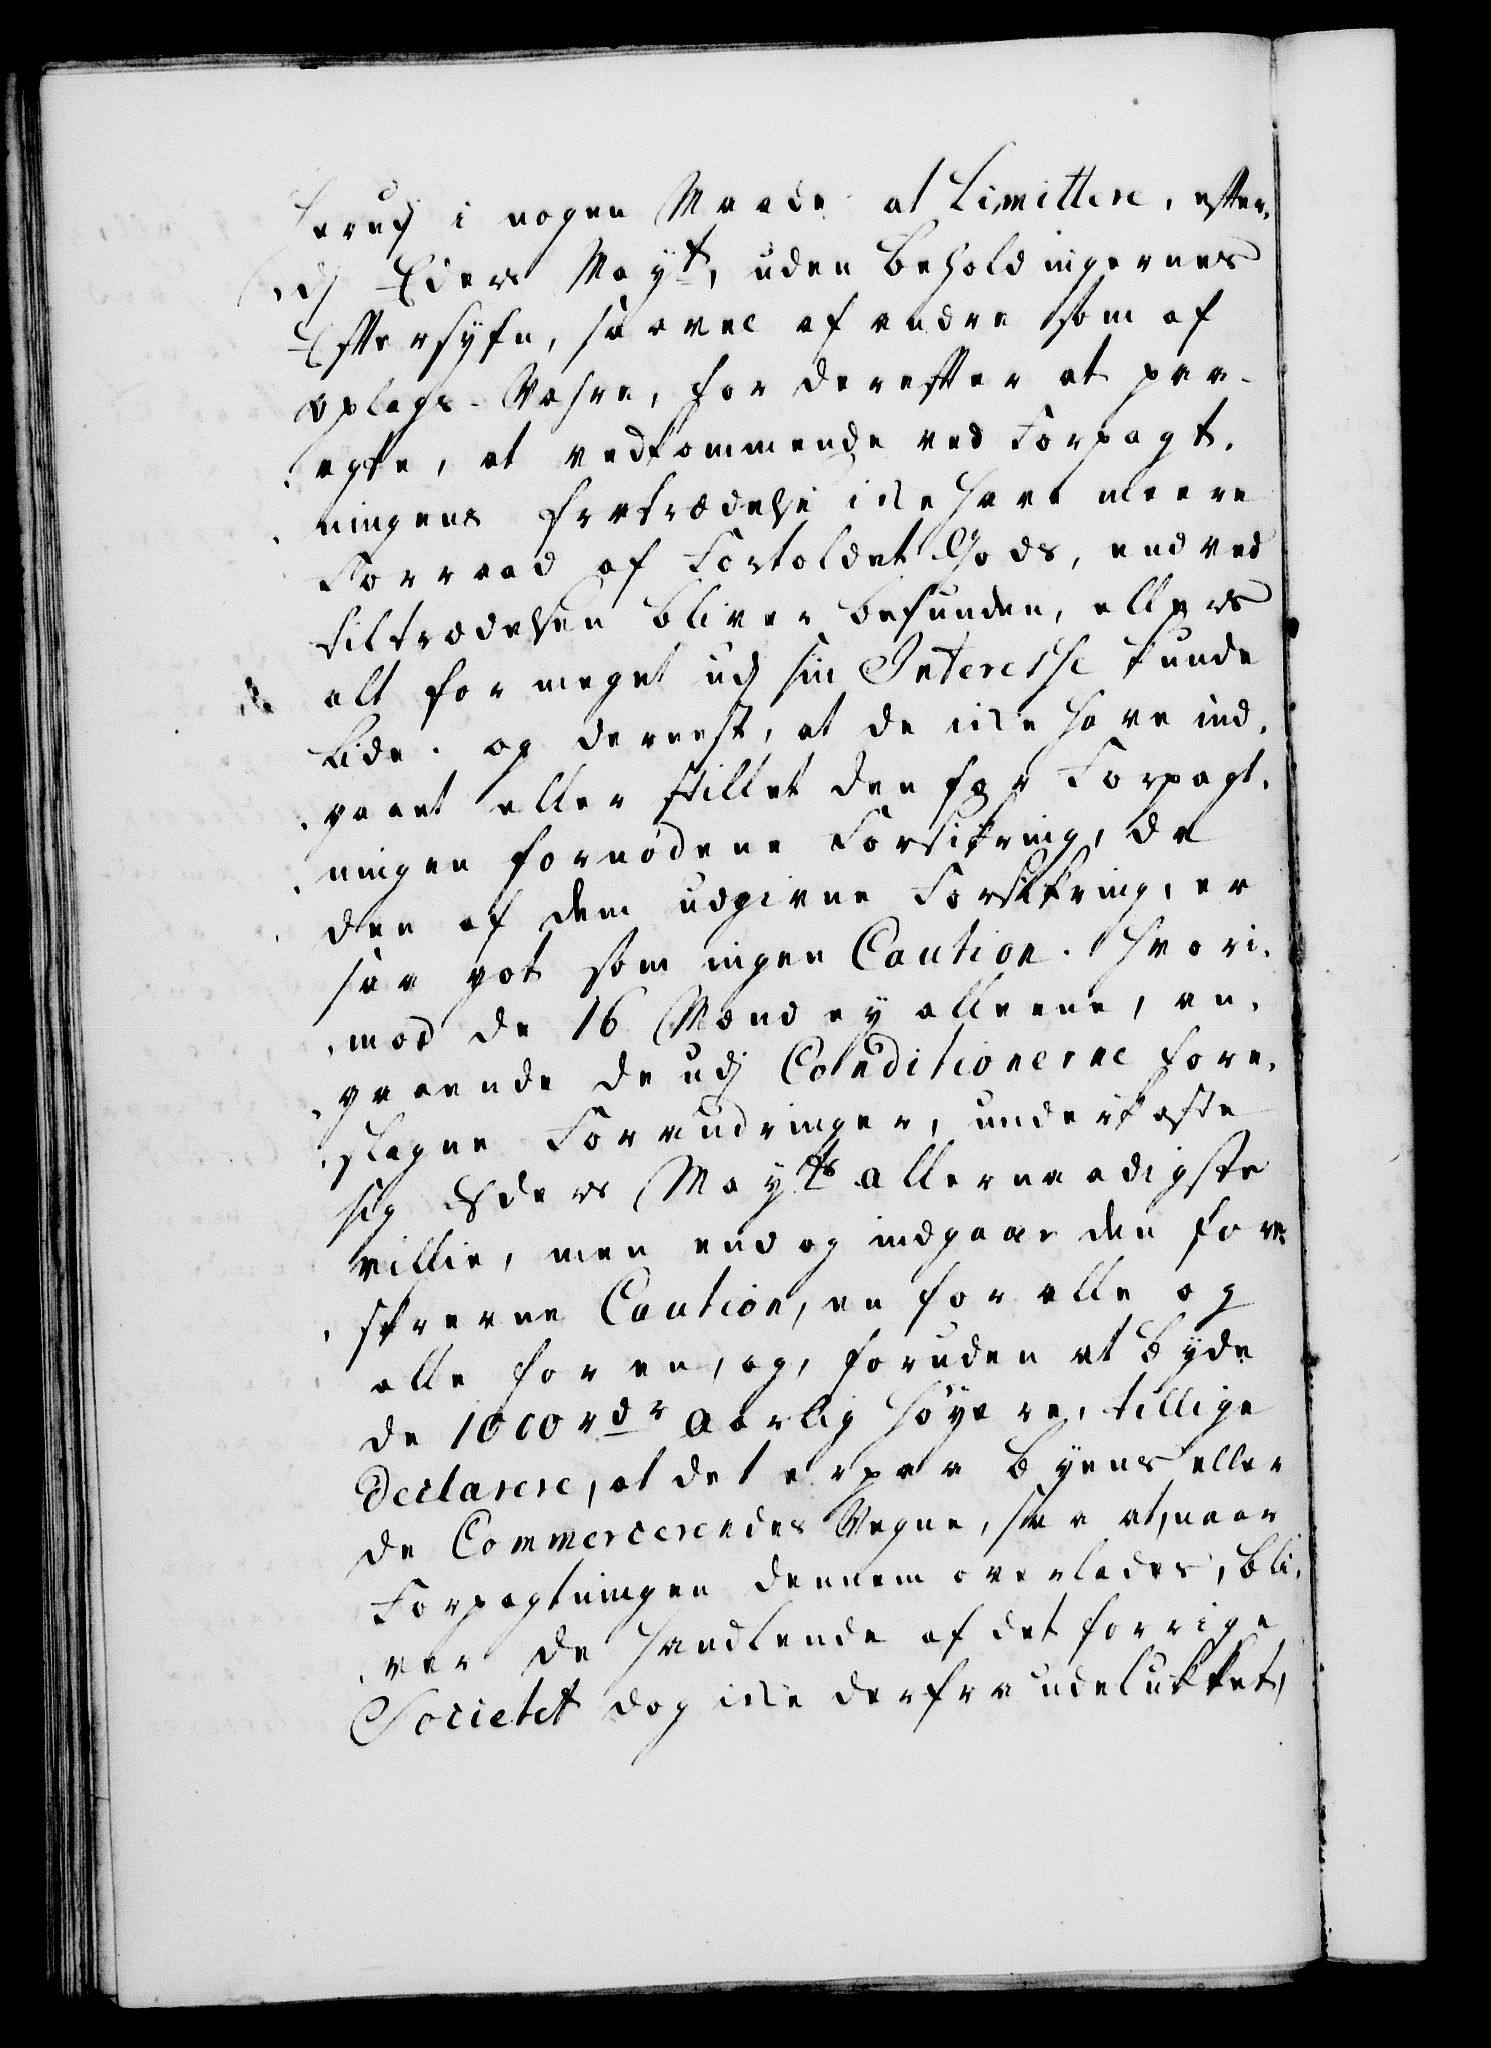 herudj i nogen Maade at Limittere, effter,
,dj Eders Mayt, uden Beholdingernes
Efftersyfn, saavel af andre som af
oplags-Vahre, for dereffter at paa-
,agte, at vedkommende ved Forpagt,
,ningens fratrædelse icke have meere
Forraad af Fortoldet Gods, end ved
tiltrædelsen bliver befunden, ellers
alt for meget udj sin Interesse kunde
lide. og derneest, at de icke have ind,
,gaaet eller stillet den for Forpagt,
,ningen fornødene Forsikring, da
den af dem udgivne Forsikring, er
saa got som ingen Caution. Hvori,
,mod de 16 Mænd ey alleene, an,
,gaaende de udj Conditionerne fore,
,slagne Forandringer, underkaste
sig Eders Mayts allernaadigste
villie, men endog indgaae den fore
,skrevne Caution, en for alle og
alle for en, og, foruden at byde
de 1000 rdr aarlig høyere, tillige
Declarere, at det er paa Byens eller
de Commercerendes Vegne, saa at, naar
Forpagtningen dennem overlades, bli,
,ver de Handlende af det forrige
Societet dog icke derfra udelukket,